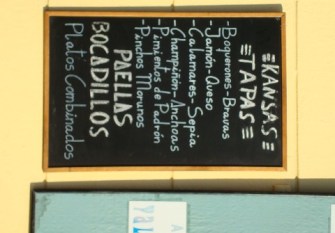 ≡KANSAS≡
≡TAPAS≡
-Boquerones-Bravas
-Jamón-Queso
-Calamares-Sepia
-Champiñón-Anchoas
-Pimientos de Padrón
-Pinchos Morunos
PAELLAS
BOCADILLOS
Platos Combinados